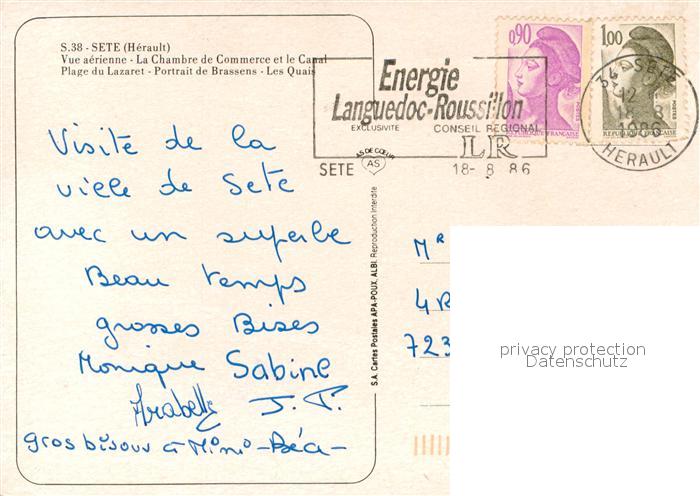 S.38 - SETE (Hérault)
Vue aérienne - La Chambre de Commerce et le Canal
Plage du Lazaret - Portrait de Brassens - Les Quais
Visite de la
ville de Sete
avec un superbe
Beau temps
grosses Bises
Monique Sabine
Arabelle J.P.
gros bisous à Mimo - Béa -
AS DE CŒUR
AS
S.A. Cartes Postales APA-POUX, ALBI. Reproduction interdite
Energie
Languedoc-Roussillon
EXCLUSIVITE CONSEIL REGIONAL
LR
SETE 18-8 86
0,90
POSTES
REPUBLIQUE FRANÇAISE
1,00
POSTES
REPUBLIQUE FRANÇAISE
34 SETE
12
18-8
1986
HERAULT
Mr
4 R
723
privacy protection
Datenschutz